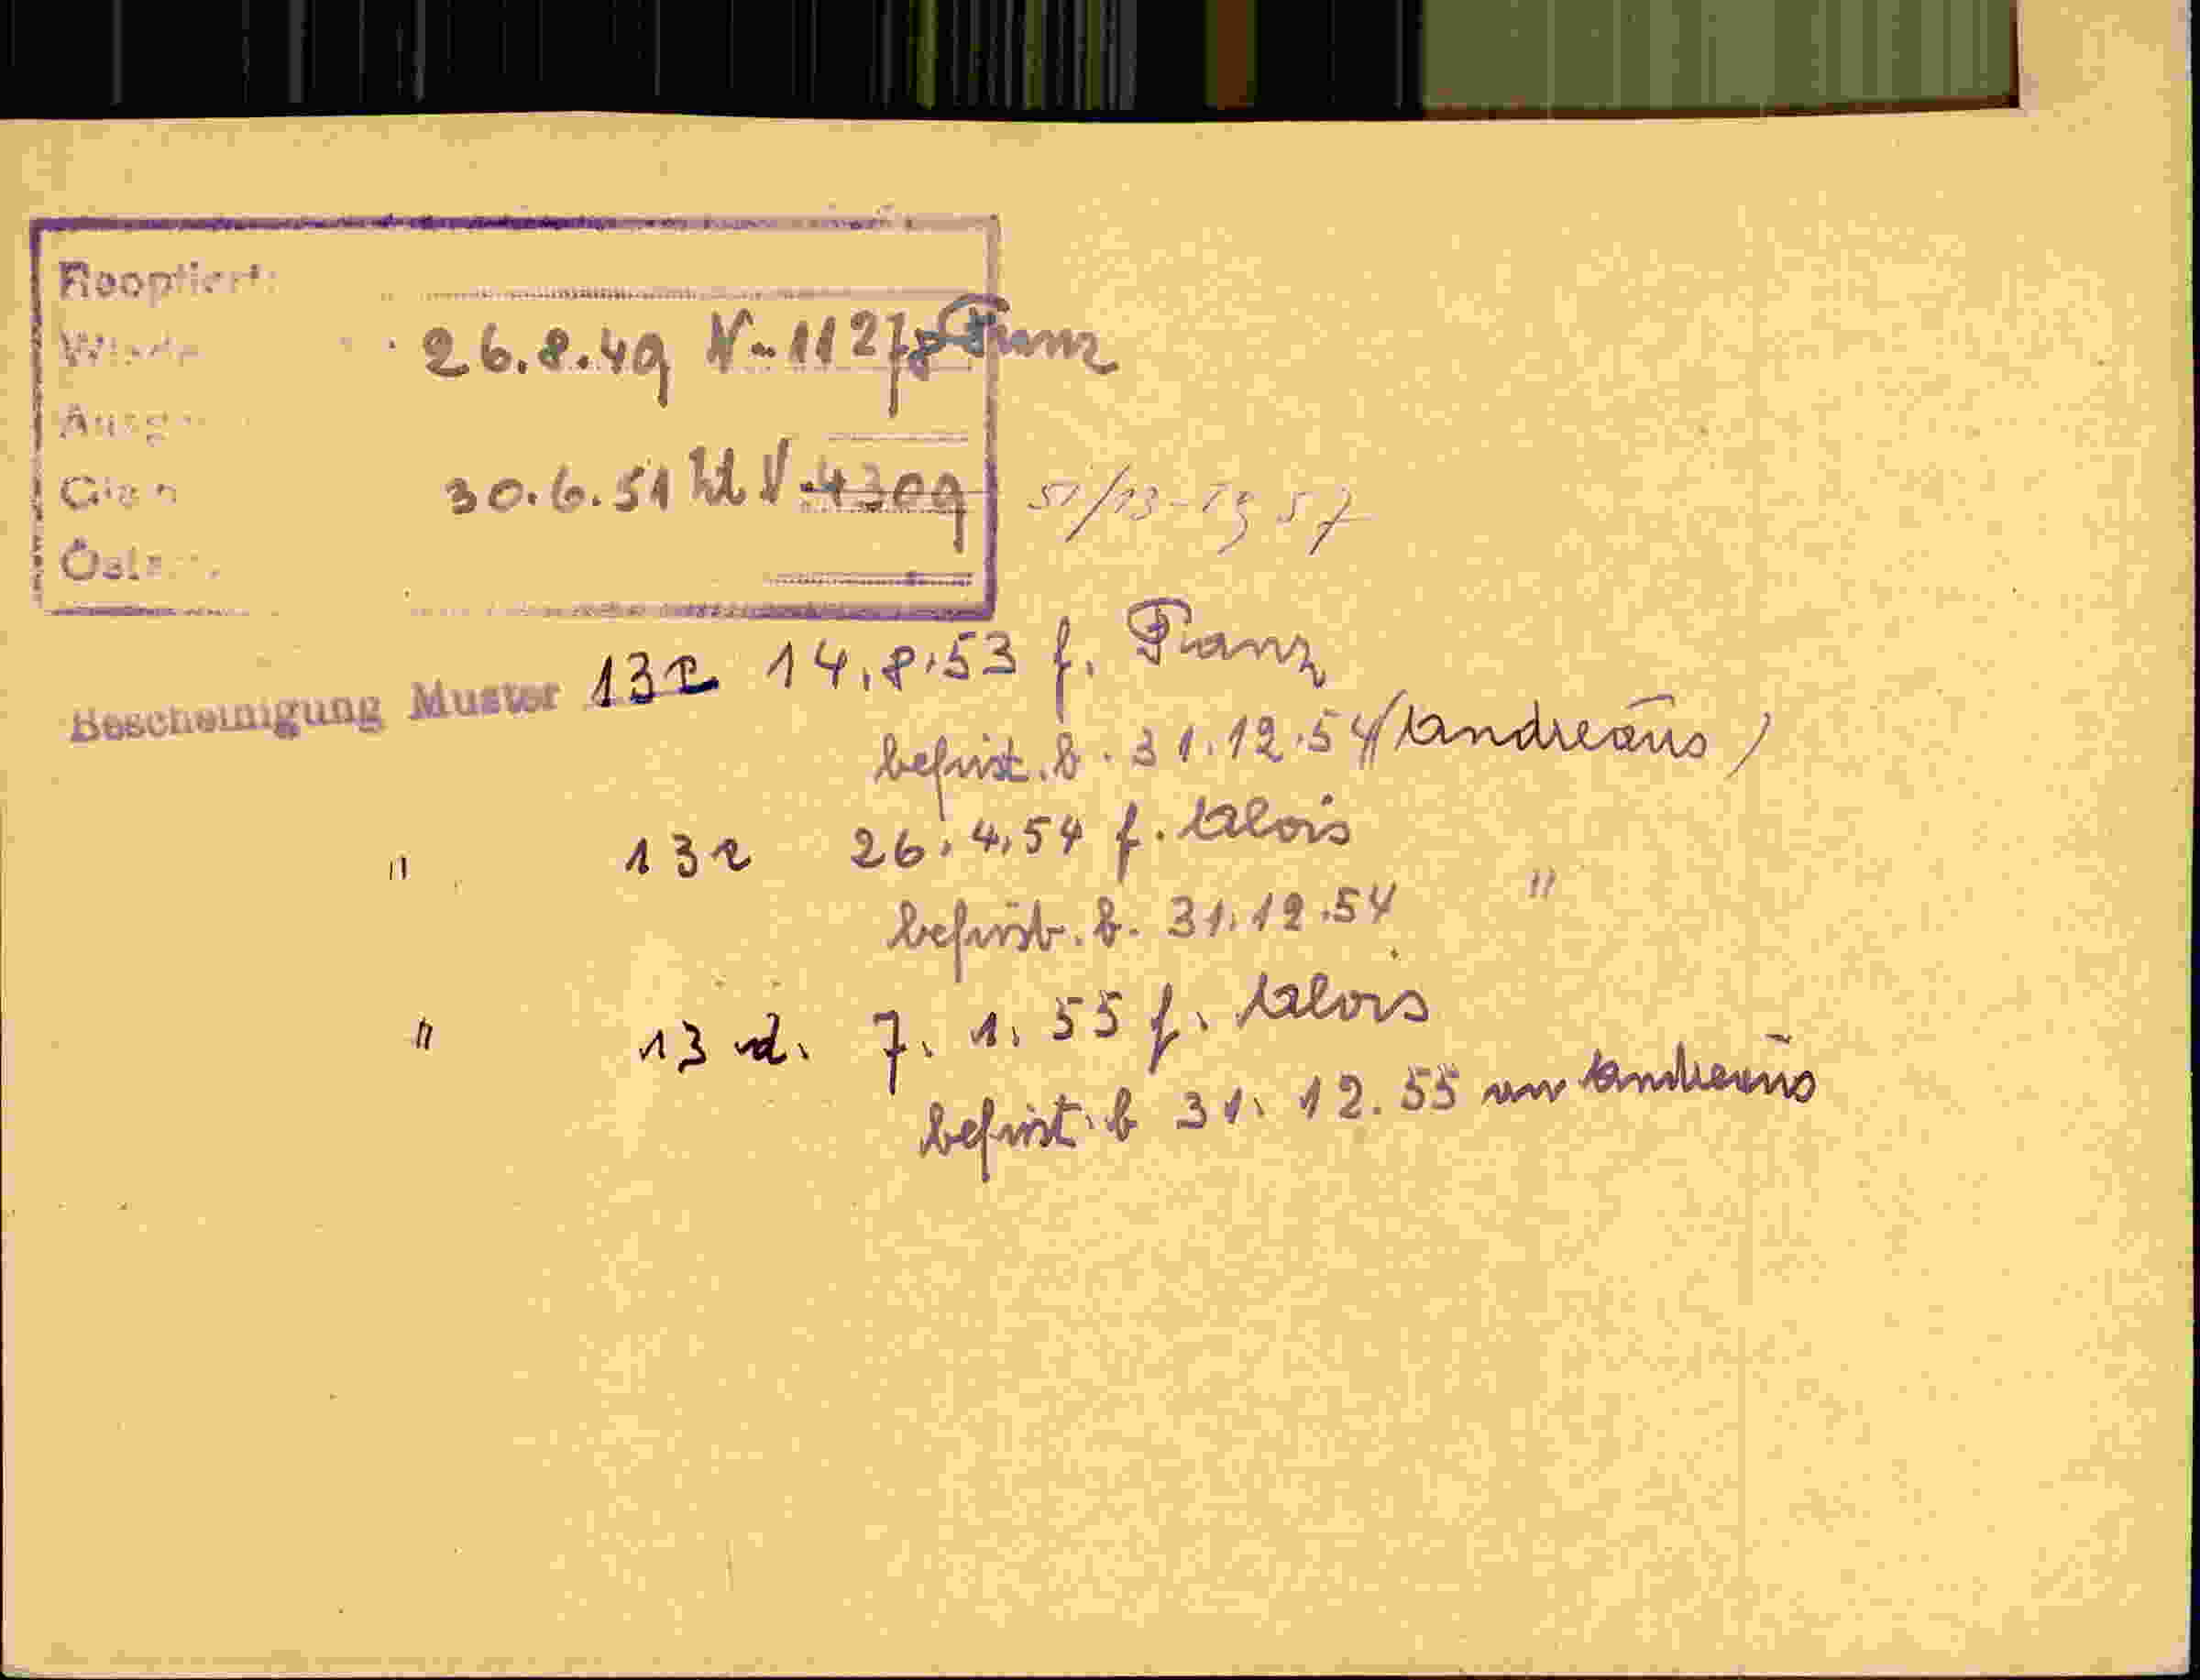 Reoptiert:
26.8.49 N-11278 Franz
30.6.51 N-4309 51/13-1957
Bescheinigung Muster 13e 14.8.53 f. Franz
befrist. b. 31.12.54 (Andreaus)
" 13e 26.4.54 f. Alois
befrist. b. 31.12.54 "
" 13 d. 7. 1. 55 f. Alois
befrist. b 31. 12. 55 an Andreaus